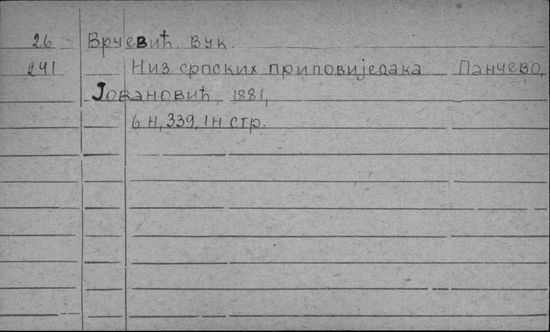 26 Врчевић, Вук.
291 Низ српских приповиједака Панчево,
Јовановић, 1881,
6 н, 339, 1н стр.